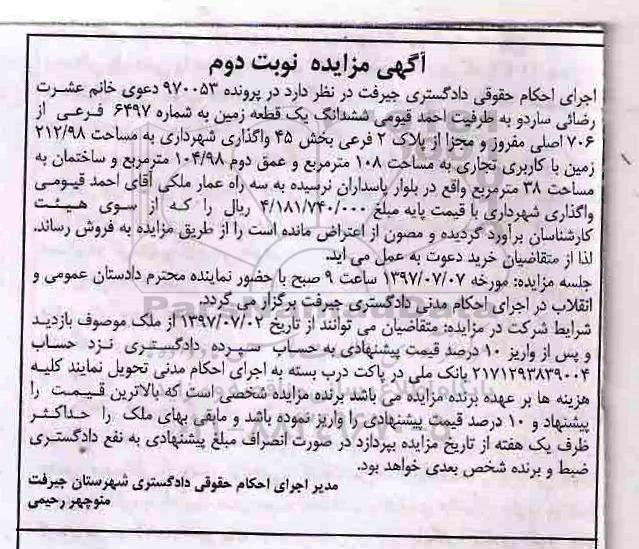 آگهی مزایده نوبت دوم
اجرای احکام حقوقی دادگستری جیرفت در نظر دارد در پرونده ۹۷۰۰۵۳ دعوی خانم عشرت
رضائی ساردو به طرفیت احمد قیومی ششدانگ یک قطعه زمین به شماره ۶۴۹۷ فرعی از
۷۰۶ اصلی مفروز و مجزا از پلاک ۲ فرعی بخش ۴۵ واگذاری شهرداری به مساحت ۲۱۲/۹۸
زمین با کاربری تجاری به مساحت ۱۰۸ مترمربع و عمق دوم ۱۰۴/۹۸ مترمربع و ساختمان به
مساحت ۳۸ مترمربع واقع در بلوار پاسداران نرسیده به سه راه عمار ملکی آقای احمد قیومی
واگذاری شهرداری با قیمت پایه مبلغ ۴/۱۸۱/۷۴۰/۰۰۰ ریال را که از سوی هیئت
کارشناسان برآورد گردیده و مصون از اعتراض مانده است را از طریق مزایده به فروش رساند.
لذا از متقاضیان خرید دعوت به عمل می اید.
جلسه مزایده: مورخه ۱۳۹۷/۰۷/۰۷ ساعت ۹ صبح با حضور نماینده محترم دادستان عمومی و
انقلاب در اجرای احکام مدنی دادگستری جیرفت برگزار می گردد.
شرایط شرکت در مزایده: متقاضیان می توانند از تاریخ ۱۳۹۷/۰۷/۰۲ از ملک موصوف بازدید
و پس از واریز ۱۰ درصد قیمت پیشنهادی به حساب سپرده دادگستری نزد حساب
۲۱۷۱۲۹۳۸۳۹۰۰۴ بانک ملی در پاکت درب بسته به اجرای احکام مدنی تحویل نمایند کلیه
هزینه ها بر عهده برنده مزایده می باشد برنده مزایده شخصی است که بالاترین قیمت را
پیشنهاد و ۱۰ درصد قیمت پیشنهادی را واریز نموده باشد و مابقی بهای ملک را حداکثر
ظرف یک هفته از تاریخ مزایده بپردازد در صورت انصراف مبلغ پیشنهادی به نفع دادگستری
ضبط و برنده شخص بعدی خواهد بود.
مدیر اجرای احکام حقوقی دادگستری شهرستان جیرفت
منوچهر رحیمی